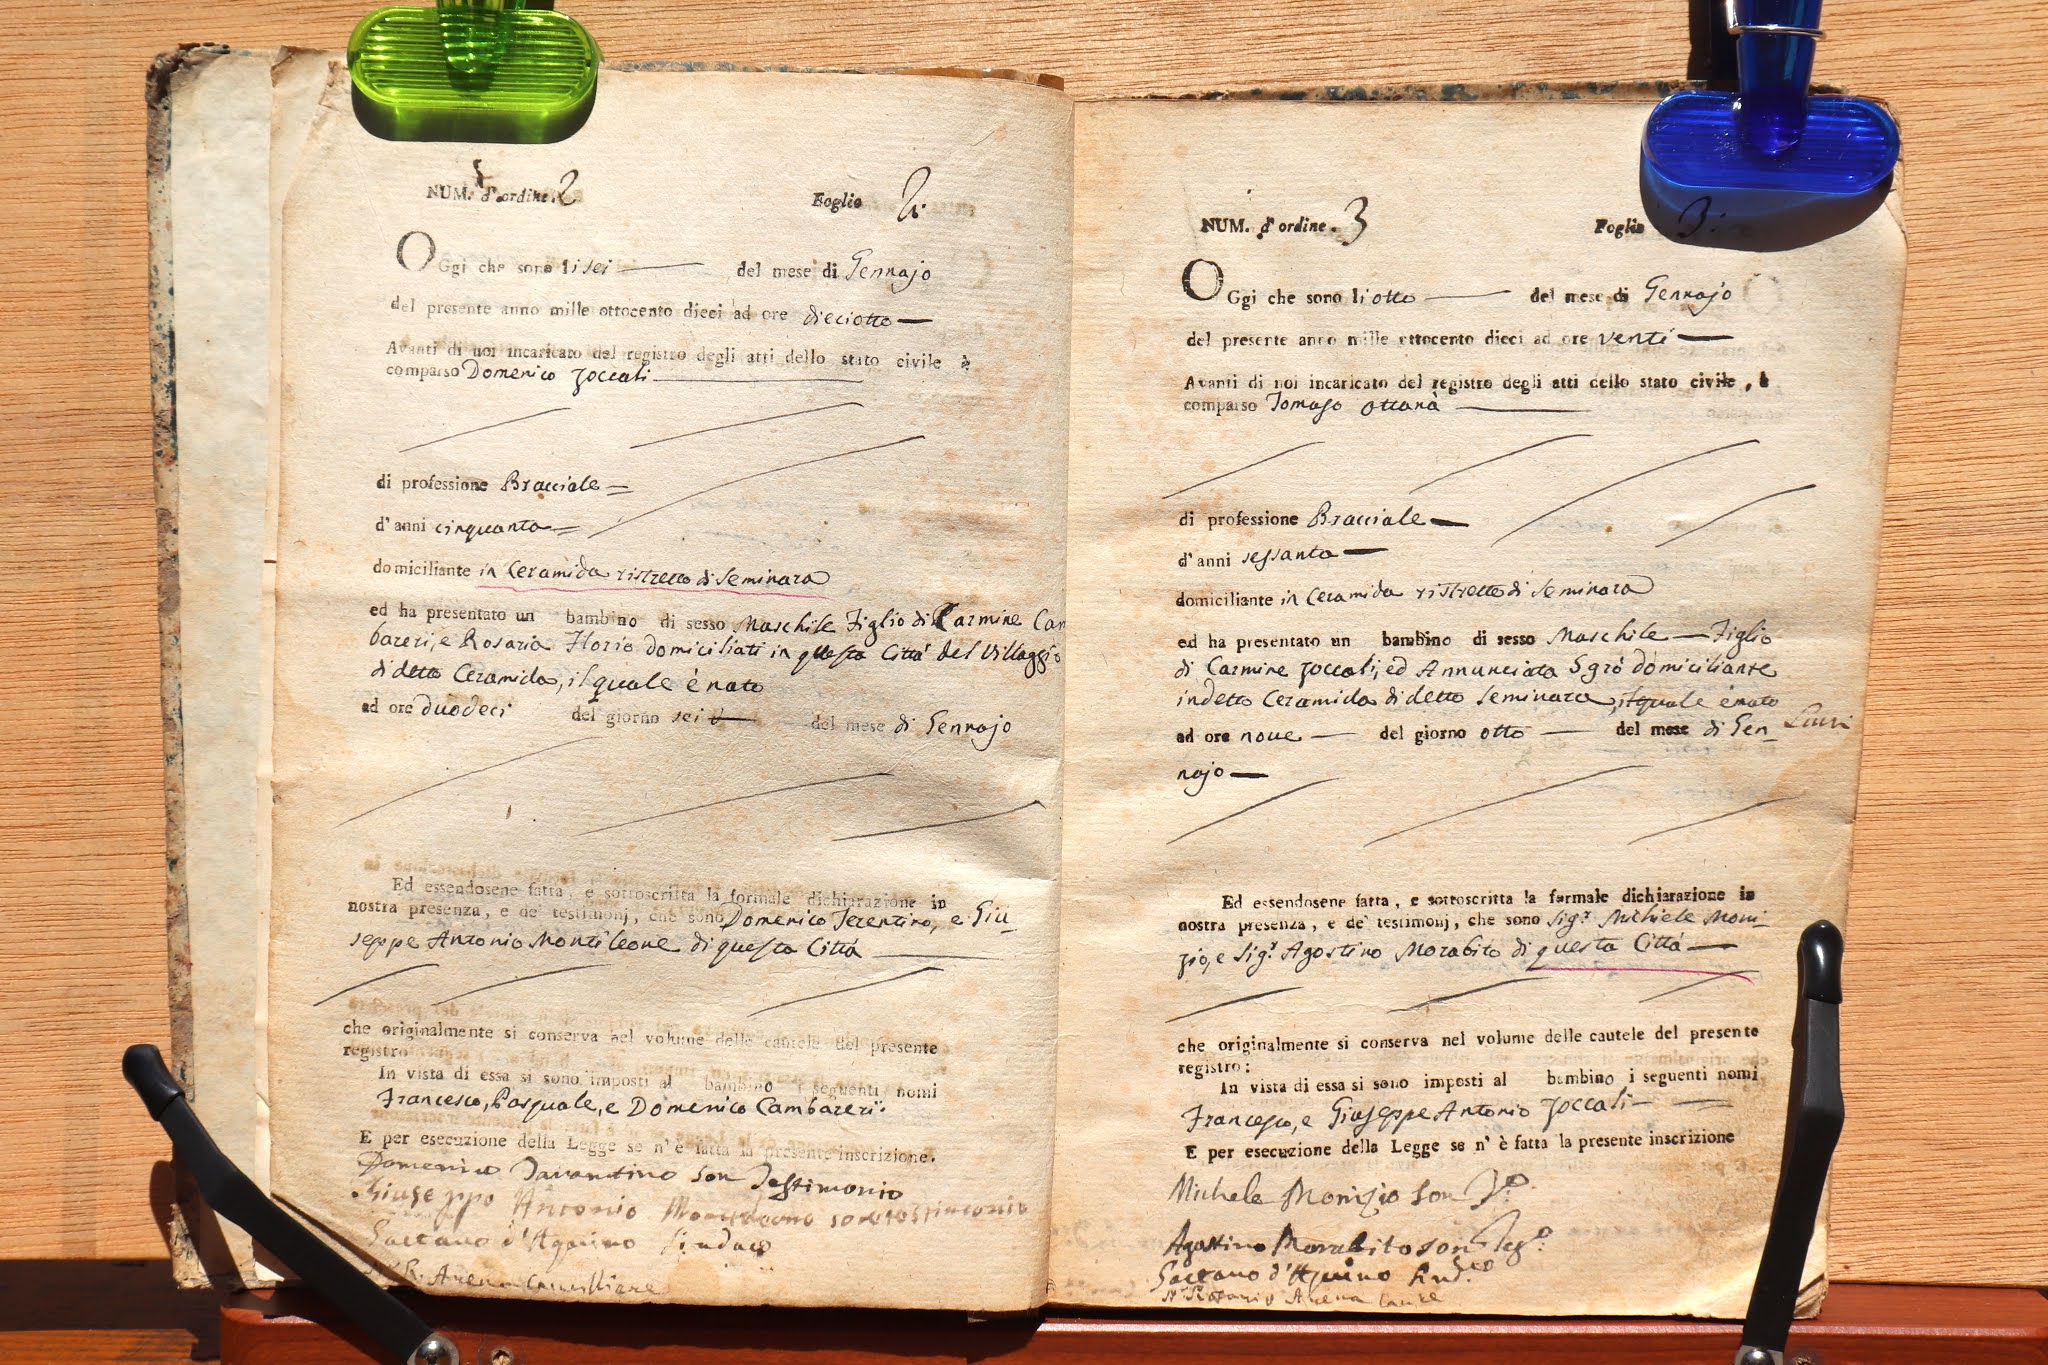 NUM. d'ordine. 2 Foglio 2.
OGgi che sono li sei del mese di Gennajo
del presente anno mille ottocento dieci ad ore dieciotto
Avanti di noi incaricato del registro degli atti dello stato civile è
comparso Domenico Zoccali
di professione Bracciale
d'anni cinquanta
domiciliante in Ceramida ristretto di Seminara
ed ha presentato un bambino di sesso Maschile Figlio di Carmine Cam
bareri, e Rosaria Florio domiciliati in questa Città del Villaggio
di detto Ceramida, il quale è nato
ad ore duodeci del giorno sei del mese di Gennajo
Ed essendosene fatta, e sottoscritta la formale dichiarazione in
nostra presenza, e de' testimonj, che sono Domenico Terentino, e Giu
seppe Antonio Montileone di questa Città
che originalmente si conserva nel volume delle cautele del presente
registro
In vista di essa si sono imposti al bambino i seguenti nomi
Francesco, Pasquale, e Domenico Cambareri.
E per esecuzione della Legge se n'è fatta la presente inscrizione.
Domenico Tarantino son Testimonio
Giuseppo Antonio son testimonio
Gaetano d'Aquino Sindaco
Arena Cancelliere
NUM. d'ordine. 3 Foglio 3.
OGgi che sono li otto del mese di Gennajo
del presente anno mille ottocento dieci ad ore venti
Avanti di noi incaricato del registro degli atti dello stato civile, è
comparso Tomaso Ottanà
di professione Bracciale
d'anni sessanta
domiciliante in Ceramida ristretto di Seminara
ed ha presentato un bambino di sesso Maschile Figlio
di Carmine Zoccali, ed Annunciata Sgrò domiciliante
in detto Ceramida di detto Seminara, il quale è nato
ad ore nove del giorno otto del mese di Gen
najo
Ed essendosene fatta, e sottoscritta la formale dichiarazione in
nostra presenza, e de' testimonj, che sono Sig.r Michele Moni
zio, e Sig.r Agostino Morabito di questa Città
che originalmente si conserva nel volume delle cautele del presente
registro:
In vista di essa si sono imposti al bambino i seguenti nomi
Francesco, e Giuseppe Antonio Zoccali
E per esecuzione della Legge se n'è fatta la presente inscrizione
Michele Monizio son
Agostino Morabito son
Gaetano d'Aquino
Arena